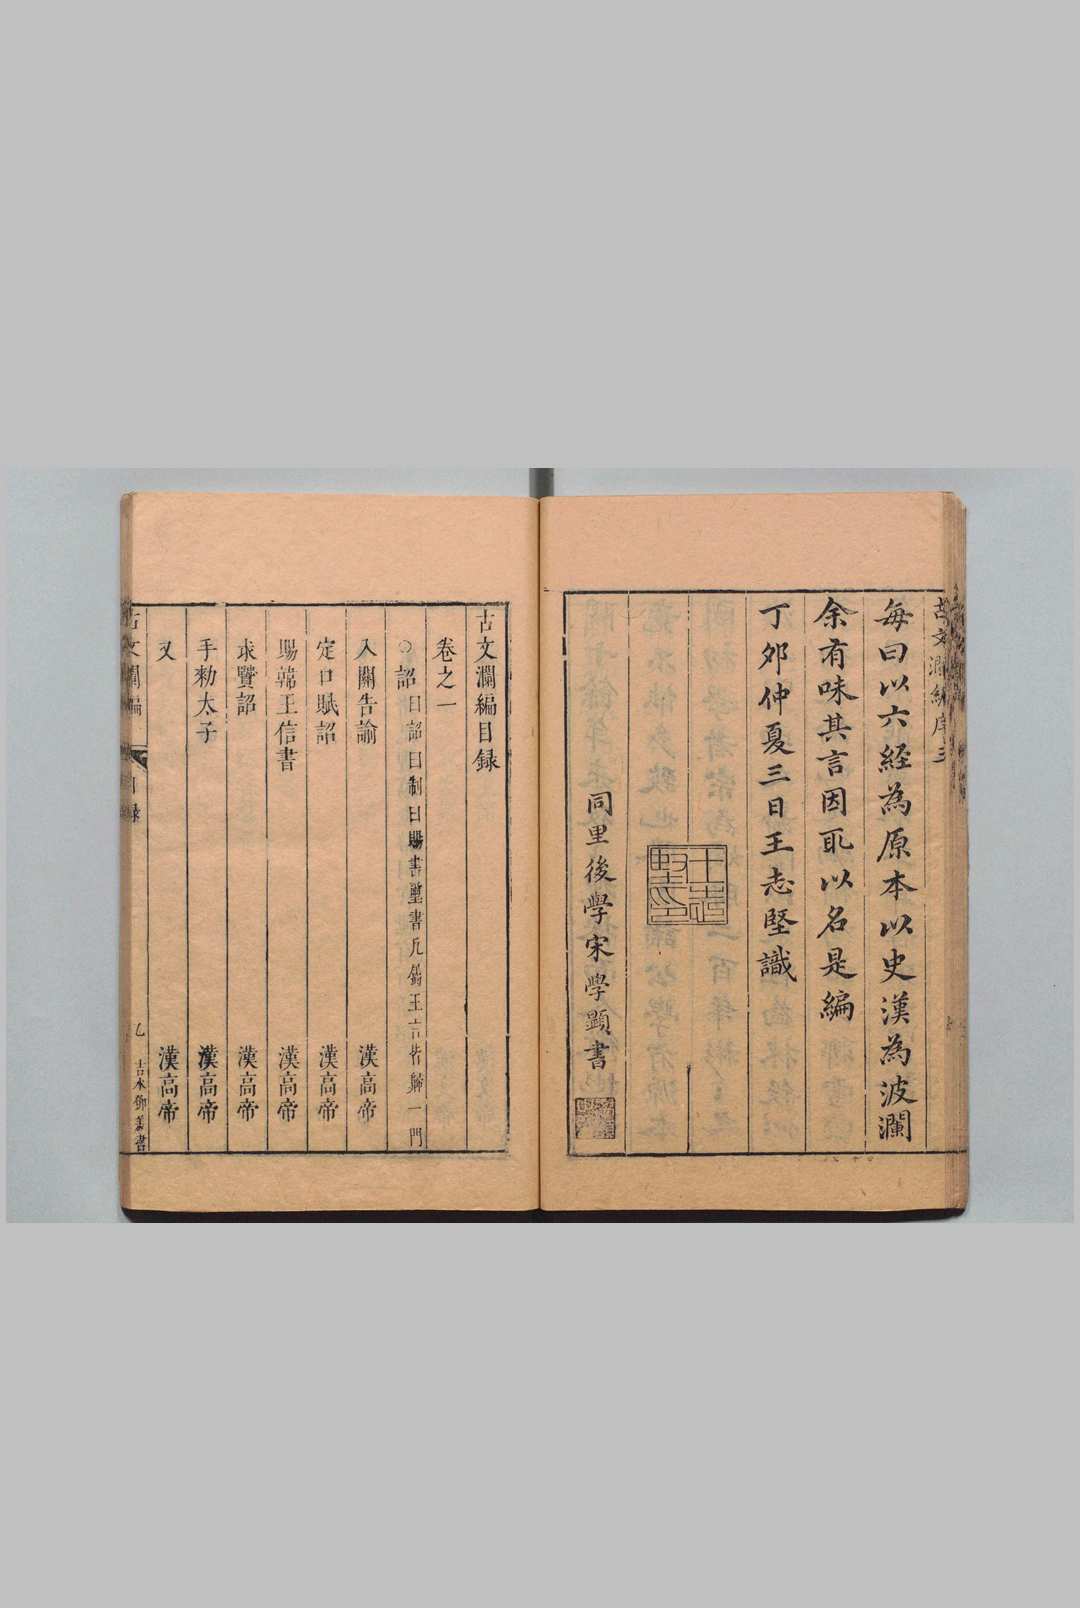 古文瀾編序三
每曰以六經為原本以史漢為波瀾
余有味其言因取以名是編
丁夘仲夏三日王志堅識
王志堅印
同里後學宋學顯書
古文瀾編目録
卷之一
○詔曰詔曰制曰賜書璽書凡係王言皆歸一門
入關告諭 漢高帝
定口賦詔 漢高帝
賜韓王信書 漢高帝
求賢詔 漢高帝
手勑太子 漢高帝
又 漢高帝
古文瀾編 目録